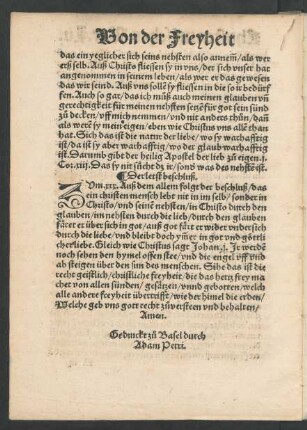 Von der Freyheit
das ein yeglicher sich seins nehsten also annem̃/als wer
ers selb. Auß Christo fliessen sy in vns/der sich vnser hat
angenommen in seinem leben/als wer er das gewesen
das wir seind. Auß vns sollē sy fliessen in die so ir bedürf
fen. Auch so gar/das ich můß auch meinen glauben vñ
gerechtigkeit für meinen nehsten setzē für got sein sünd
zů decken/vff mich nemmen/vnd nit anders thůn/dañ
als werē sy mein eigen/eben wie Christus vns allē than
hat. Sich das ist die natur der liebe/wo sy warhafftig
ist/da ist sy aber warhafftig/wo der glaub warhafftig
ist. Darumb gibt der heilig Apostel der lieb zů eigen.1.
Cor.xiij. Das sy nit sůcht dz ir/sond was des nehstē ist.
¶ Der lest beschluß.
Zům.xxx. Auß dem allem folgt der beschluß/das
ein christen mensch lebt nit in im selb/sonder in
Christo/vnd seinē nehsten/in Christo durch den
glauben/im nehsten durch die lieb/durch den glauben
faret er über sich in got/auß got fart er wider vndersich
durch die liebe/vnd bleibt doch ym̄er in got vnd göttli
cher liebe. Gleich wie Christus sagt Johan.1. Jr werdē
noch sehen den hymel offen stee/vnd die engel vff vnd
ab steigen über den sun des menschen. Sihe das ist die
recht geistlich/christliche freyheit/die das hertz frey ma
chet von allen sünden/gesätzen/vnnd gebotten/welch
alle andere freyheit übertrifft/wie der himel die erden/
Welche geb vns gott recht zů versteen vnd behalten/
Amen.
Gedruckt zů Basel durch
Adam Petri.